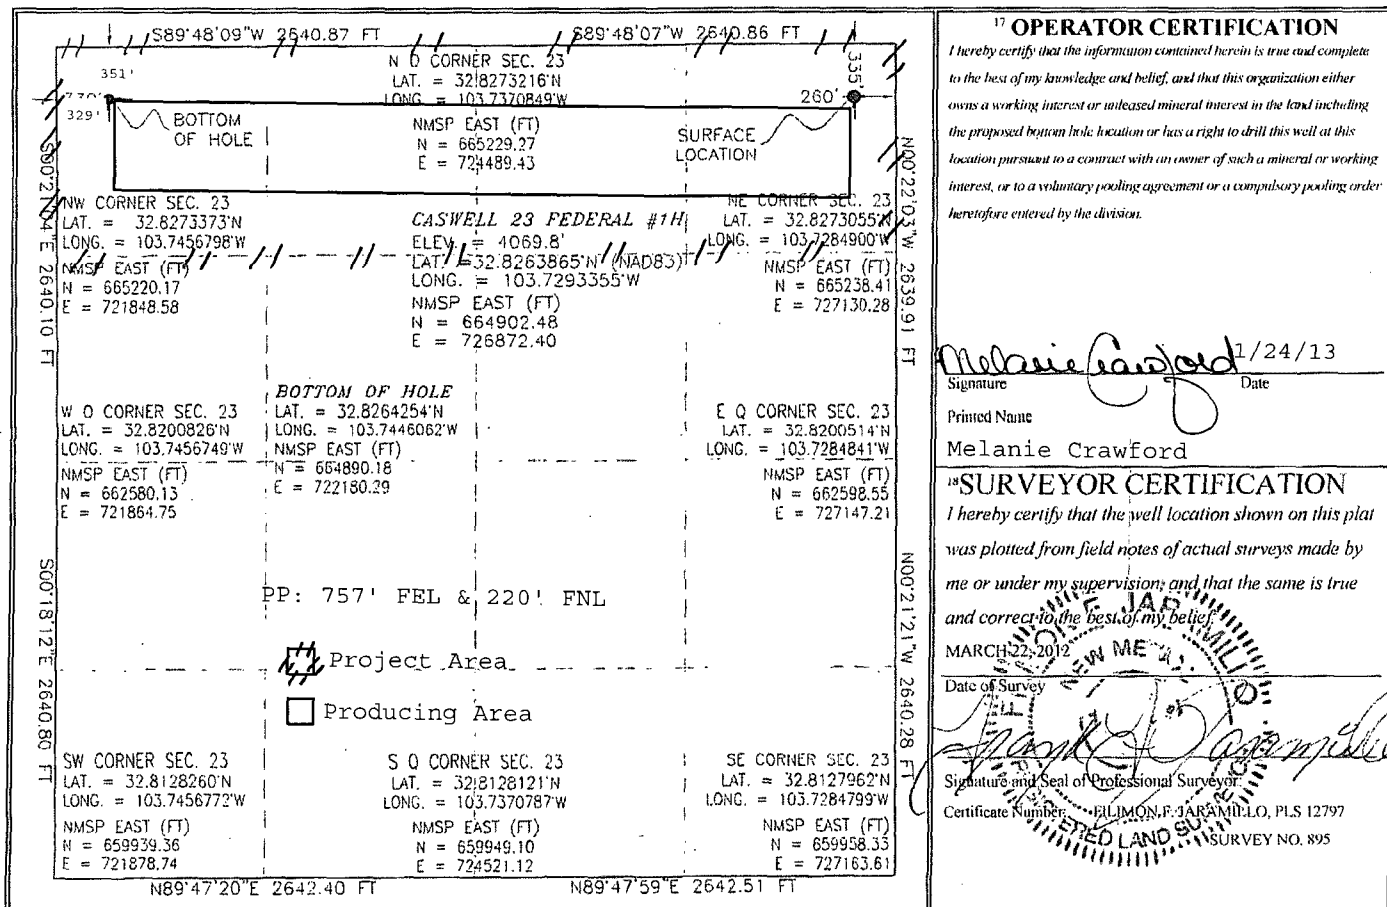 S89°48'09"W 2640.87 FT
S89°48'07"W 2640.86 FT
351'
335'
N Q CORNER SEC. 23
LAT. = 32.8273216'N
LONG. = 103.7370849'W
NMSP EAST (FT)
N = 665229.27
E = 724489.43
329'
BOTTOM
OF HOLE
260'
SURFACE
LOCATION
NW CORNER SEC. 23
LAT. = 32.8273373'N
LONG. = 103.7456798'W
NMSP EAST (FT)
N = 665220.17
E = 721848.58
CASWELL 23 FEDERAL #1H
ELEV. = 4069.8'
LAT. = 32.8263865'N (NAD83)
LONG. = 103.7293355'W
NMSP EAST (FT)
N = 664902.48
E = 726872.40
NE CORNER SEC. 23
LAT. = 32.8273055'N
LONG. = 103.7284900'W
NMSP EAST (FT)
N = 665238.41
E = 727130.28
E 2640.10 FT
N00°22'03"W 2639.91 FT
W Q CORNER SEC. 23
LAT. = 32.8200826'N
LONG. = 103.7456749'W
NMSP EAST (FT)
N = 662580.13
E = 721864.75
BOTTOM OF HOLE
LAT. = 32.8264254'N
LONG. = 103.7446062'W
NMSP EAST (FT)
N = 664890.18
E = 722180.29
E Q CORNER SEC. 23
LAT. = 32.8200514'N
LONG. = 103.7284841'W
NMSP EAST (FT)
N = 662598.55
E = 727147.21
S00°18'12"E 2640.80 FT
N00°21'21"W 2640.28 FT
PP: 757' FEL & 220' FNL
Project Area
Producing Area
SW CORNER SEC. 23
LAT. = 32.8128260'N
LONG. = 103.7456772'W
NMSP EAST (FT)
N = 659939.36
E = 721878.74
S Q CORNER SEC. 23
LAT. = 32.8128121'N
LONG. = 103.7370787'W
NMSP EAST (FT)
N = 659949.10
E = 724521.12
SE CORNER SEC. 23
LAT. = 32.8127962'N
LONG. = 103.7284799'W
NMSP EAST (FT)
N = 659958.33
E = 727163.61
N89°47'20"E 2642.40 FT
N89°47'59"E 2642.51 FT
17 OPERATOR CERTIFICATION
I hereby certify that the information contained herein is true and complete
to the best of my knowledge and belief, and that this organization either
owns a working interest or unleased mineral interest in the land including
the proposed bottom hole location or has a right to drill this well at this
location pursuant to a contract with an owner of such a mineral or working
interest, or to a voluntary pooling agreement or a compulsory pooling order
heretofore entered by the division.
Melanie Crawford 1/24/13
Signature Date
Printed Name
Melanie Crawford
18 SURVEYOR CERTIFICATION
I hereby certify that the well location shown on this plat
was plotted from field notes of actual surveys made by
me or under my supervision, and that the same is true
and correct to the best of my belief.
MARCH 22, 2012
Date of Survey
Signature and Seal of Professional Surveyor:
Certificate Number: FILIMON F. JARAMILLO, PLS 12797
SURVEY NO. 895